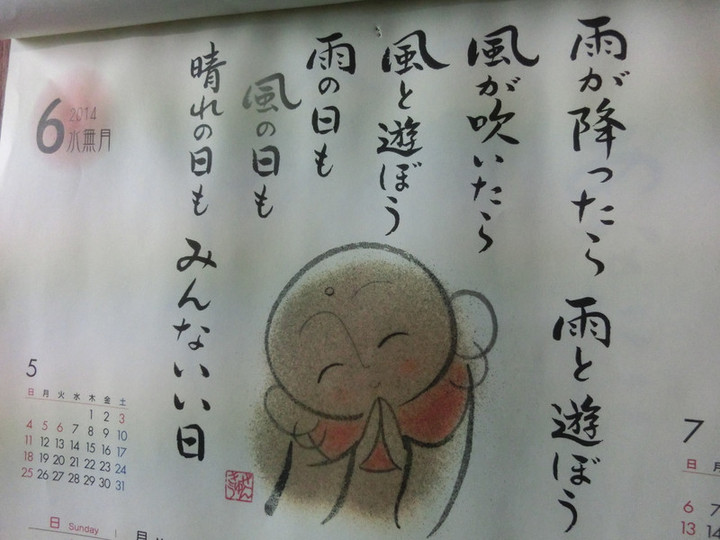 雨が降ったら 雨と遊ぼう
風が吹いたら
風と遊ぼう
雨の日も
風の日も
晴れの日も みんないい日
6
2014
水無月
5
日 月 火 水 木 金 土
1 2 3
4 5 6 7 8 9 10
11 12 13 14 15 16 17
18 19 20 21 22 23 24
25 26 27 28 29 30 31
7
日 月
6 7
13 14
日 Sunday
月